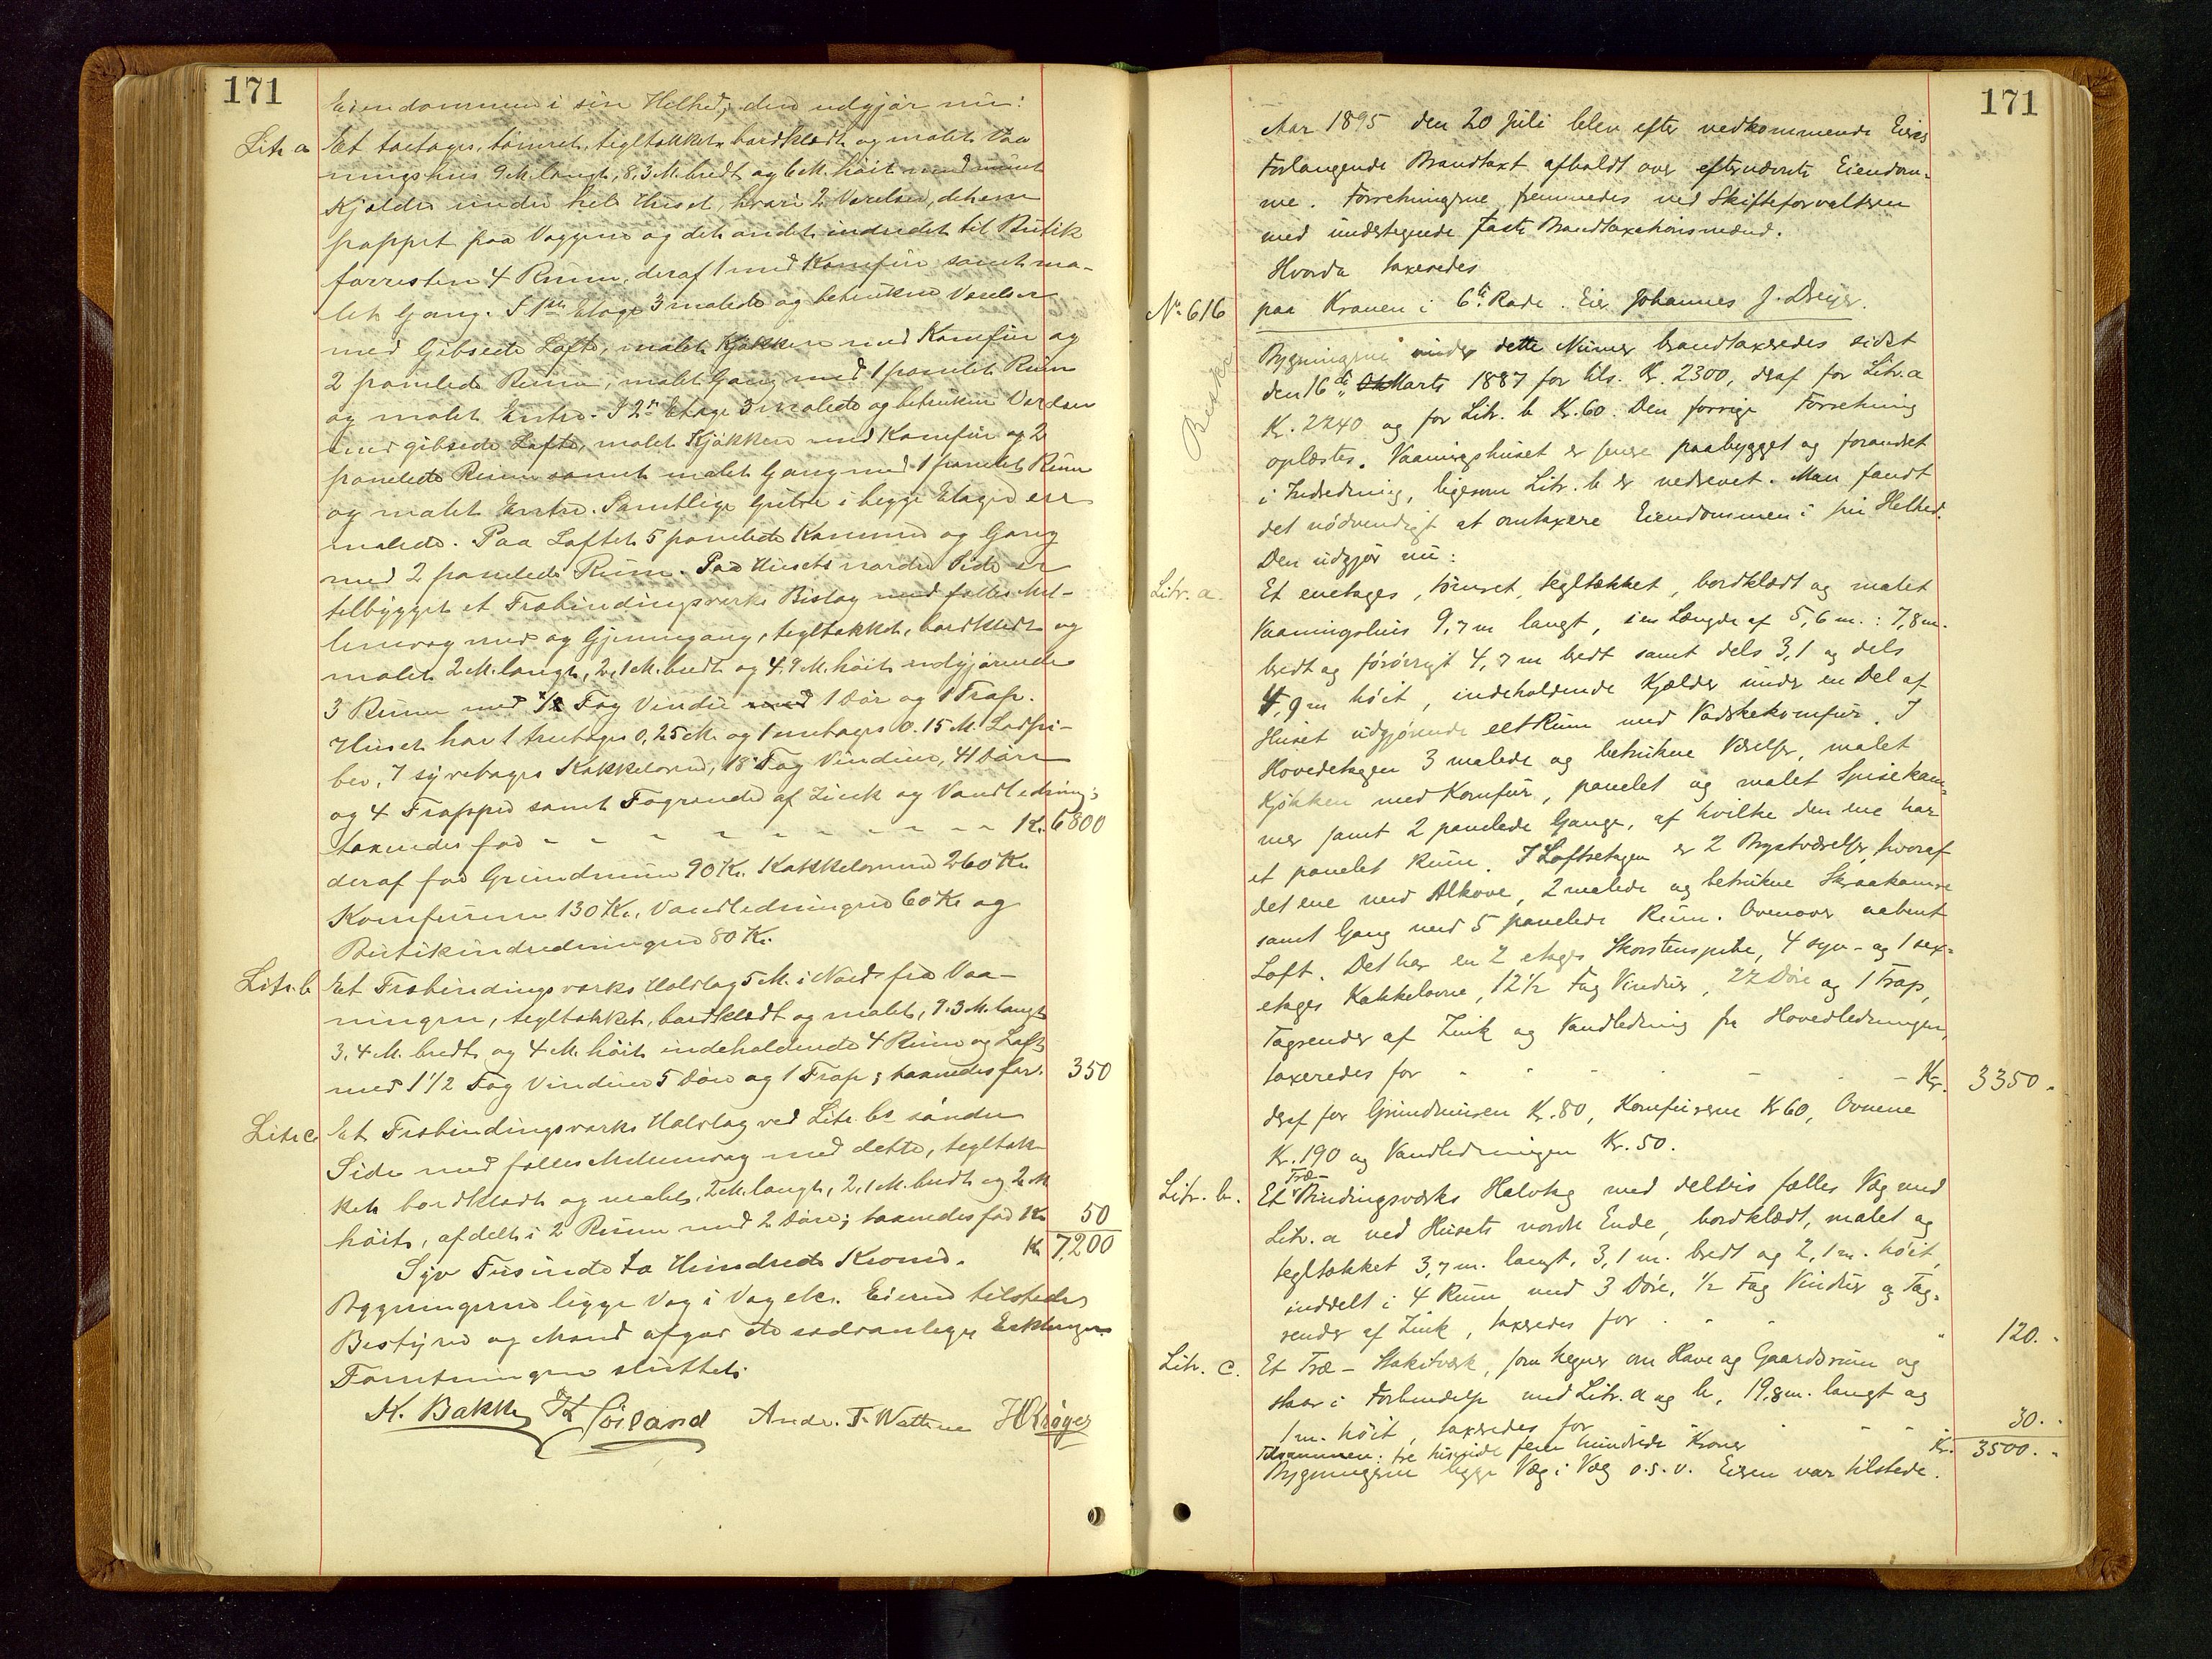 171
Eiendommen i sin Helhed; den udgjør nu:
Litr a Et toetages, tømret, tegltækket, bordklædt og malet Vaa
ningshus 9 M. langt, 8,3 M. bredt og 6 M. høit med muret
Kjælder under hele Huset, hvori 2 Værelser, det ene
pappet paa Væggene og det andet indredet til Butik
forresten 4 Rum, deraf 1 med Komfur samt ma-
let Gang. I 1ste Etage 3 malede og betrukne Værelser
med gibsede Lofte, malet Kjøkken med Komfur og
2 panelede Rum, malet Gang med 1 panelet Rum
og malet Entre. I 2den Etage 3 malede og betrukne Værelser
med gibsede Lofte, malet Kjøkken med Komfur og 2
panelede Rum samt malet Gang med 1 panelet Rum
og malet Entre. Samtlige Gulve i begge Etager ere
malede. Paa Loftet 5 panelede Kammer og Gang
med 2 panelede Rum. Paa Husets nordre Side er
tilbygget et Træbindingsværks Bislag med fælles Mel-
lemvæg med og Gjennegang, tegltækket, bordklædt og
malet 2 M. langt, 2,1 M. bredt og 4,9 M. høit udgjørende
3 Rum med 1/2 Fag Vindu med 1 Dør og 1 Trap.
Huset har 1 treetages 0,25 M. og 1 enetages 0.15 M. Lodpi-
ber, 7 syvetages Kakkelovne, 18 Fag Vinduer, 41 Døre
og 4 Trapper samt Tagrender af Zink og Vandledning;
taxeredes for - - - - - - - - - Kr. 6800
deraf for Grundmuren 90 Kr. Kakkelovnene 260 Kr.
Komfurene 130 Kr., Vandledningen 60 Kr og
Butikindredningen 80 Kr.
Litr. b Et Træbindingsværks Halvtag 5 M. i Nord fra Vaa-
ningen, tegltækket, bordklædt og malet, 9.3 M. langt
3,4 M. bredt og 4 M. høit indeholdende 4 Rum og Loft
med 1 1/2 Fag Vinduer 5 Døre og 1 Trap; taxeredes for. 350
Litr c. Et Træbindingsværks Halvtag ved Litr. bs søndre
Side med fælles Mellemvæg med dette, tegltæk-
ket bordklædt og malet, 2 M. langt, 2,1 M. bredt og 2 M
høit, afdelt i 2 Rum med 2 Døre; taxeredes for Kr 50
Kr 7,200
Syv Tusinde to Hundrede Kroner.
Bygningerne ligge Væg i Væg etc. Eieren tilstede.
Bestyrer og Mænd afgav de sædvanlige Erklæringer
Forretningen sluttet.
K. Bakke Andr. T. Wattne H Krøger
171
Aar 1895 den 20 Juli blev efter vedkommende Eiers
Forlangende Brandtaxt afholdt over efternævnte Eiendom-
me. Forretningerne fremmedes ved Skifteforvalteren
med undertegnede faste Brandtaxationsmænd.
Hvorda taxeredes
No 616 paa Kranen i 6te Rode. Eier Johannes J. Dreyer.
Bygningerne under dette Numer brandtaxeredes sidst
den 16de Marts 1887 for tils. Kr. 2300, deraf for Litr. a
Kr. 2240 og for Litr. b Kr. 60. Den forrige Forretning
oplæstes. Vaaningshuset er senere paabygget og forandret
i Indredning, ligesom Litr. b er nedrevet. Man fandt
det nødvendigt at omtaxere Eiendommen i sin Helhed.
Den udgjør nu:
Litr. a. Et enetages, tømret, tegltækket, bordklædt og malet
Vaaningshus 9,7 m langt, i en Længde af 5,6 m.: 7,8 m.
bredt og forøvrigt 4,7 m bredt samt dels 3,1 og dels
4,9 m høit, indeholdende Kjælder under en Del af
Huset udgjørende eet Rum med Vadskekomfur. I
Hovedetagen 3 malede og betrukne Værelser, malet
Kjøkken med Komfur, panelet og malet Spisekam-
mer samt 2 panelede Gange, af hvilke den ene har
et panelet Rum. I Loftsetagen er 2 Brystværelser, hvoraf
det ene med Alkove, 2 malede og betrukne Skraakamre
samt Gang med 5 panelede Rum. Ovenover aabent
Loft. Det har en 2 etages Skorstenspibe, 4 syv- og 1 sex-
etages Kakkelovne, 12 1/2 Fag Vinduer, 22 Døre og 1 Trap,
Tagrender af Zink og Vandledning fra Hovedledningen,
taxeredes for - - - - - Kr. 3350.
deraf for Grundmuren Kr. 80, Komfurerne Kr 60, Ovnene
Kr. 190 og Vandledningen Kr. 50.
Litr. b. Et Træ-Bindingsværks Halvtag med deltvis fælles Væg med
Litr. a ved Husets nordre Ende, bordklædt, malet og
tegltækket 3,7 m. langt, 3,1 m. bredt og 2,1 m. høit,
inddelt i 4 Rum med 3 Døre, 1/2 Fag Vinduer og Tag-
render af Zink, taxeredes for - - - 120.
Litr. c. Et Træ-Stakitværk, som hegner om Have og Gaardsrum og
staar i Forbindelse med Litr. a og b, 19,8 m. langt og
1 m. høit, taxeredes for - - - 30.
Tilsammen: tre tusinde fem hundrede Kroner Kr. 3500.
Bygningerne ligge Væg i Væg o.s.v. Eieren var tilstede.